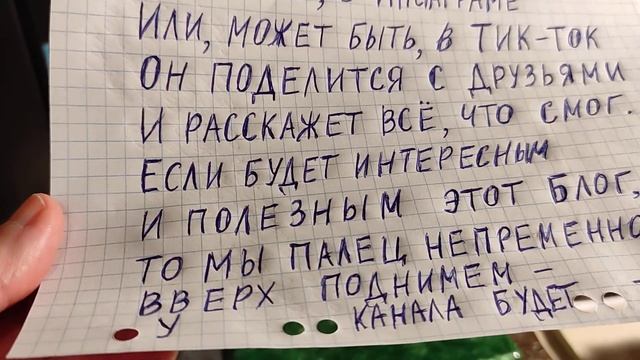 ИЛИ, МОЖЕТ БЫТЬ, В ТИК-ТОК
ОН ПОДЕЛИТСЯ С ДРУЗЬЯМИ
И РАССКАЖЕТ ВСЁ, ЧТО СМОГ.
ЕСЛИ БУДЕТ ИНТЕРЕСНЫМ
И ПОЛЕЗНЫМ ЭТОТ БЛОГ,
ТО МЫ ПАЛЕЦ НЕПРЕМЕННО
ВВЕРХ ПОДНИМЕМ –
У КАНАЛА БУДЕТ